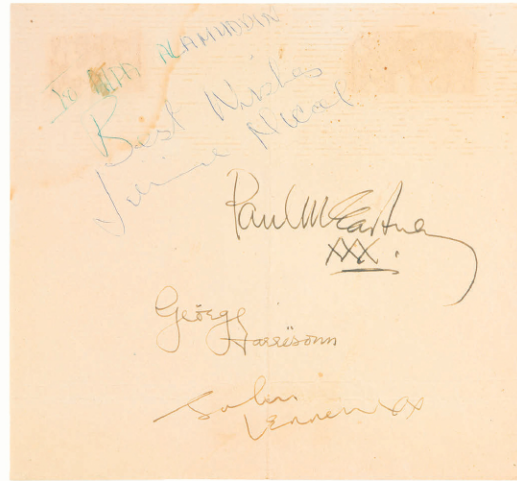 To ALAMUDDIN
Best Wishes
Jimmie Nicol.
Paul McCartney
XXX.
George
Harrison
John
Lennon xx